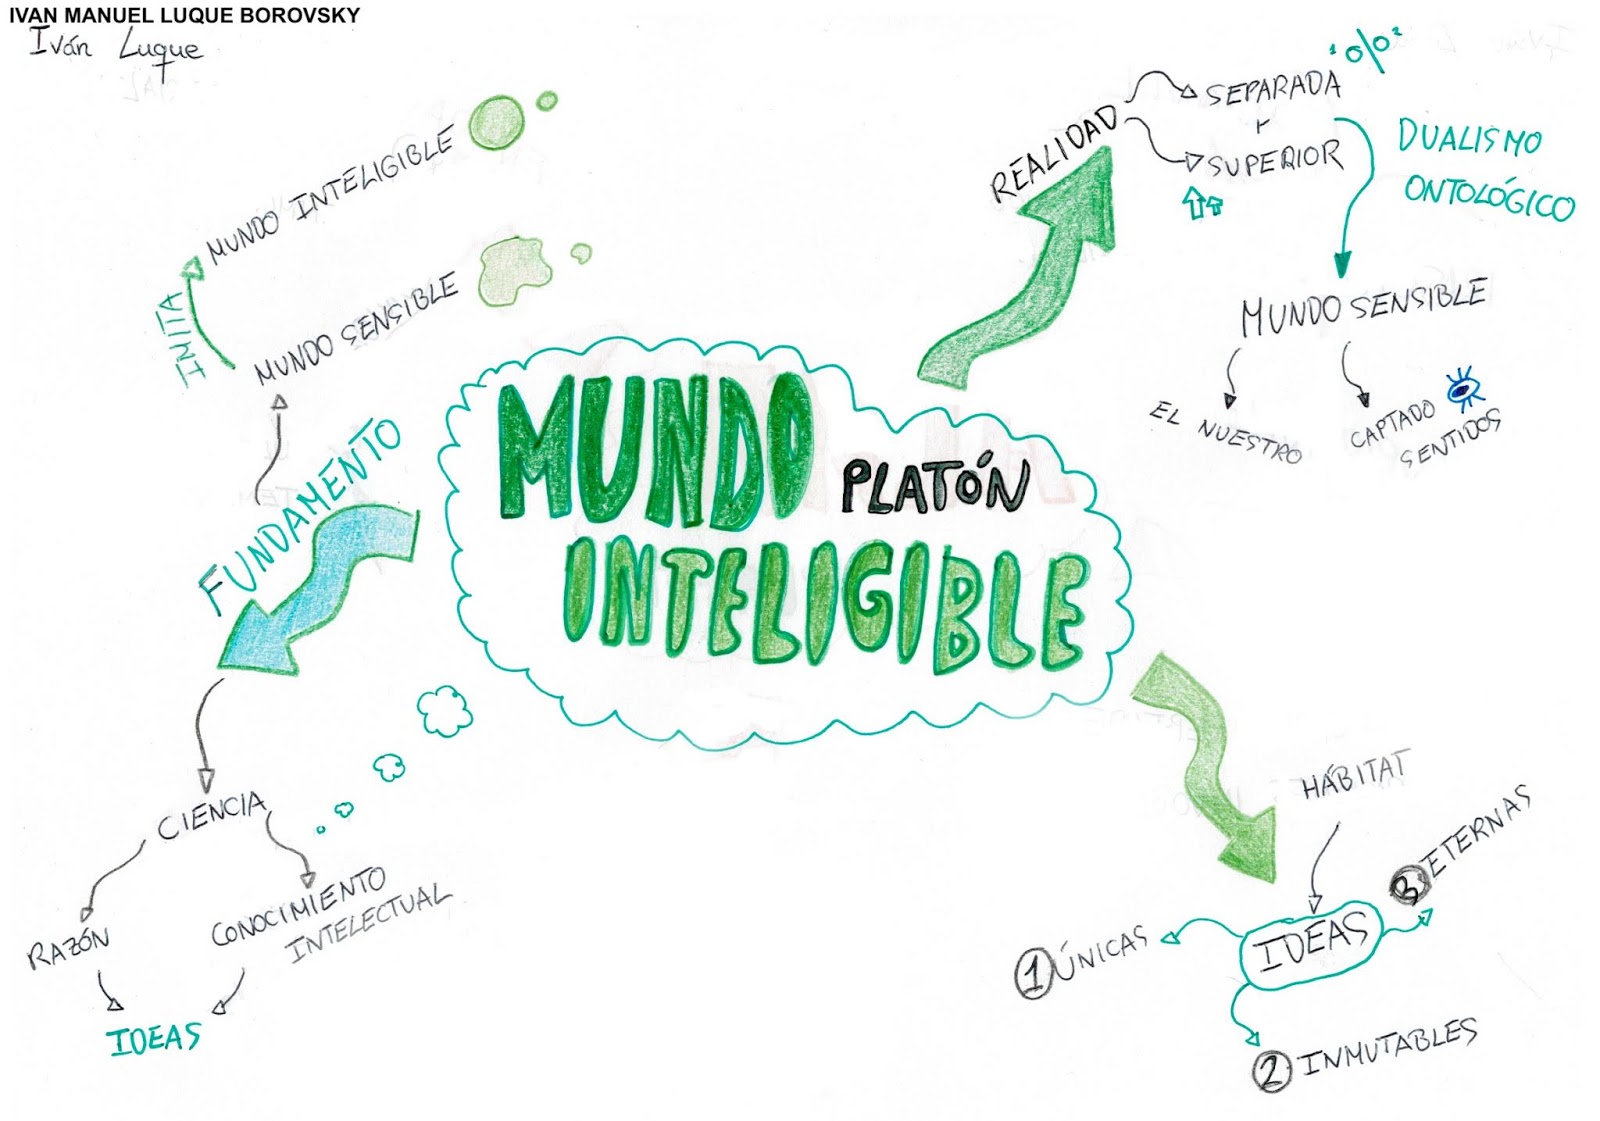 IVAN MANUEL LUQUE BOROVSKY
Iván Luque
MUNDO INTELIGIBLE
IMITA
MUNDO SENSIBLE
FUNDAMENTO
CIENCIA
RAZÓN
CONOCIMIENTO
INTELECTUAL
IDEAS
MUNDO
PLATÓN
INTELIGIBLE
REALIDAD
SEPARADA
Y
SUPERIOR
DUALISMO
ONTOLÓGICO
MUNDO SENSIBLE
EL NUESTRO
CAPTADO
SENTIDOS
HÁBITAT
IDEAS
1 ÚNICAS
2 INMUTABLES
3 ETERNAS